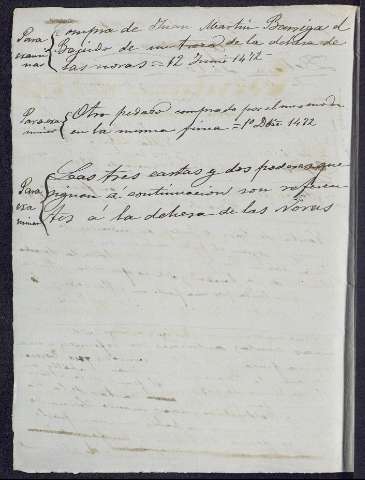 Para
exami
nar
Compra de Juan Martin
de un trozo de la dehesa de
las novas = 12 Junio 1472 -
Para exa
minar
Otro pedazo comprado por el mismo en
en la misma finca = 1º Dbre 1472
Para
exa
minar
Las tres cartas y dos poderes que
siguen á continuacion son referen
tes á la dehesa de las Novas